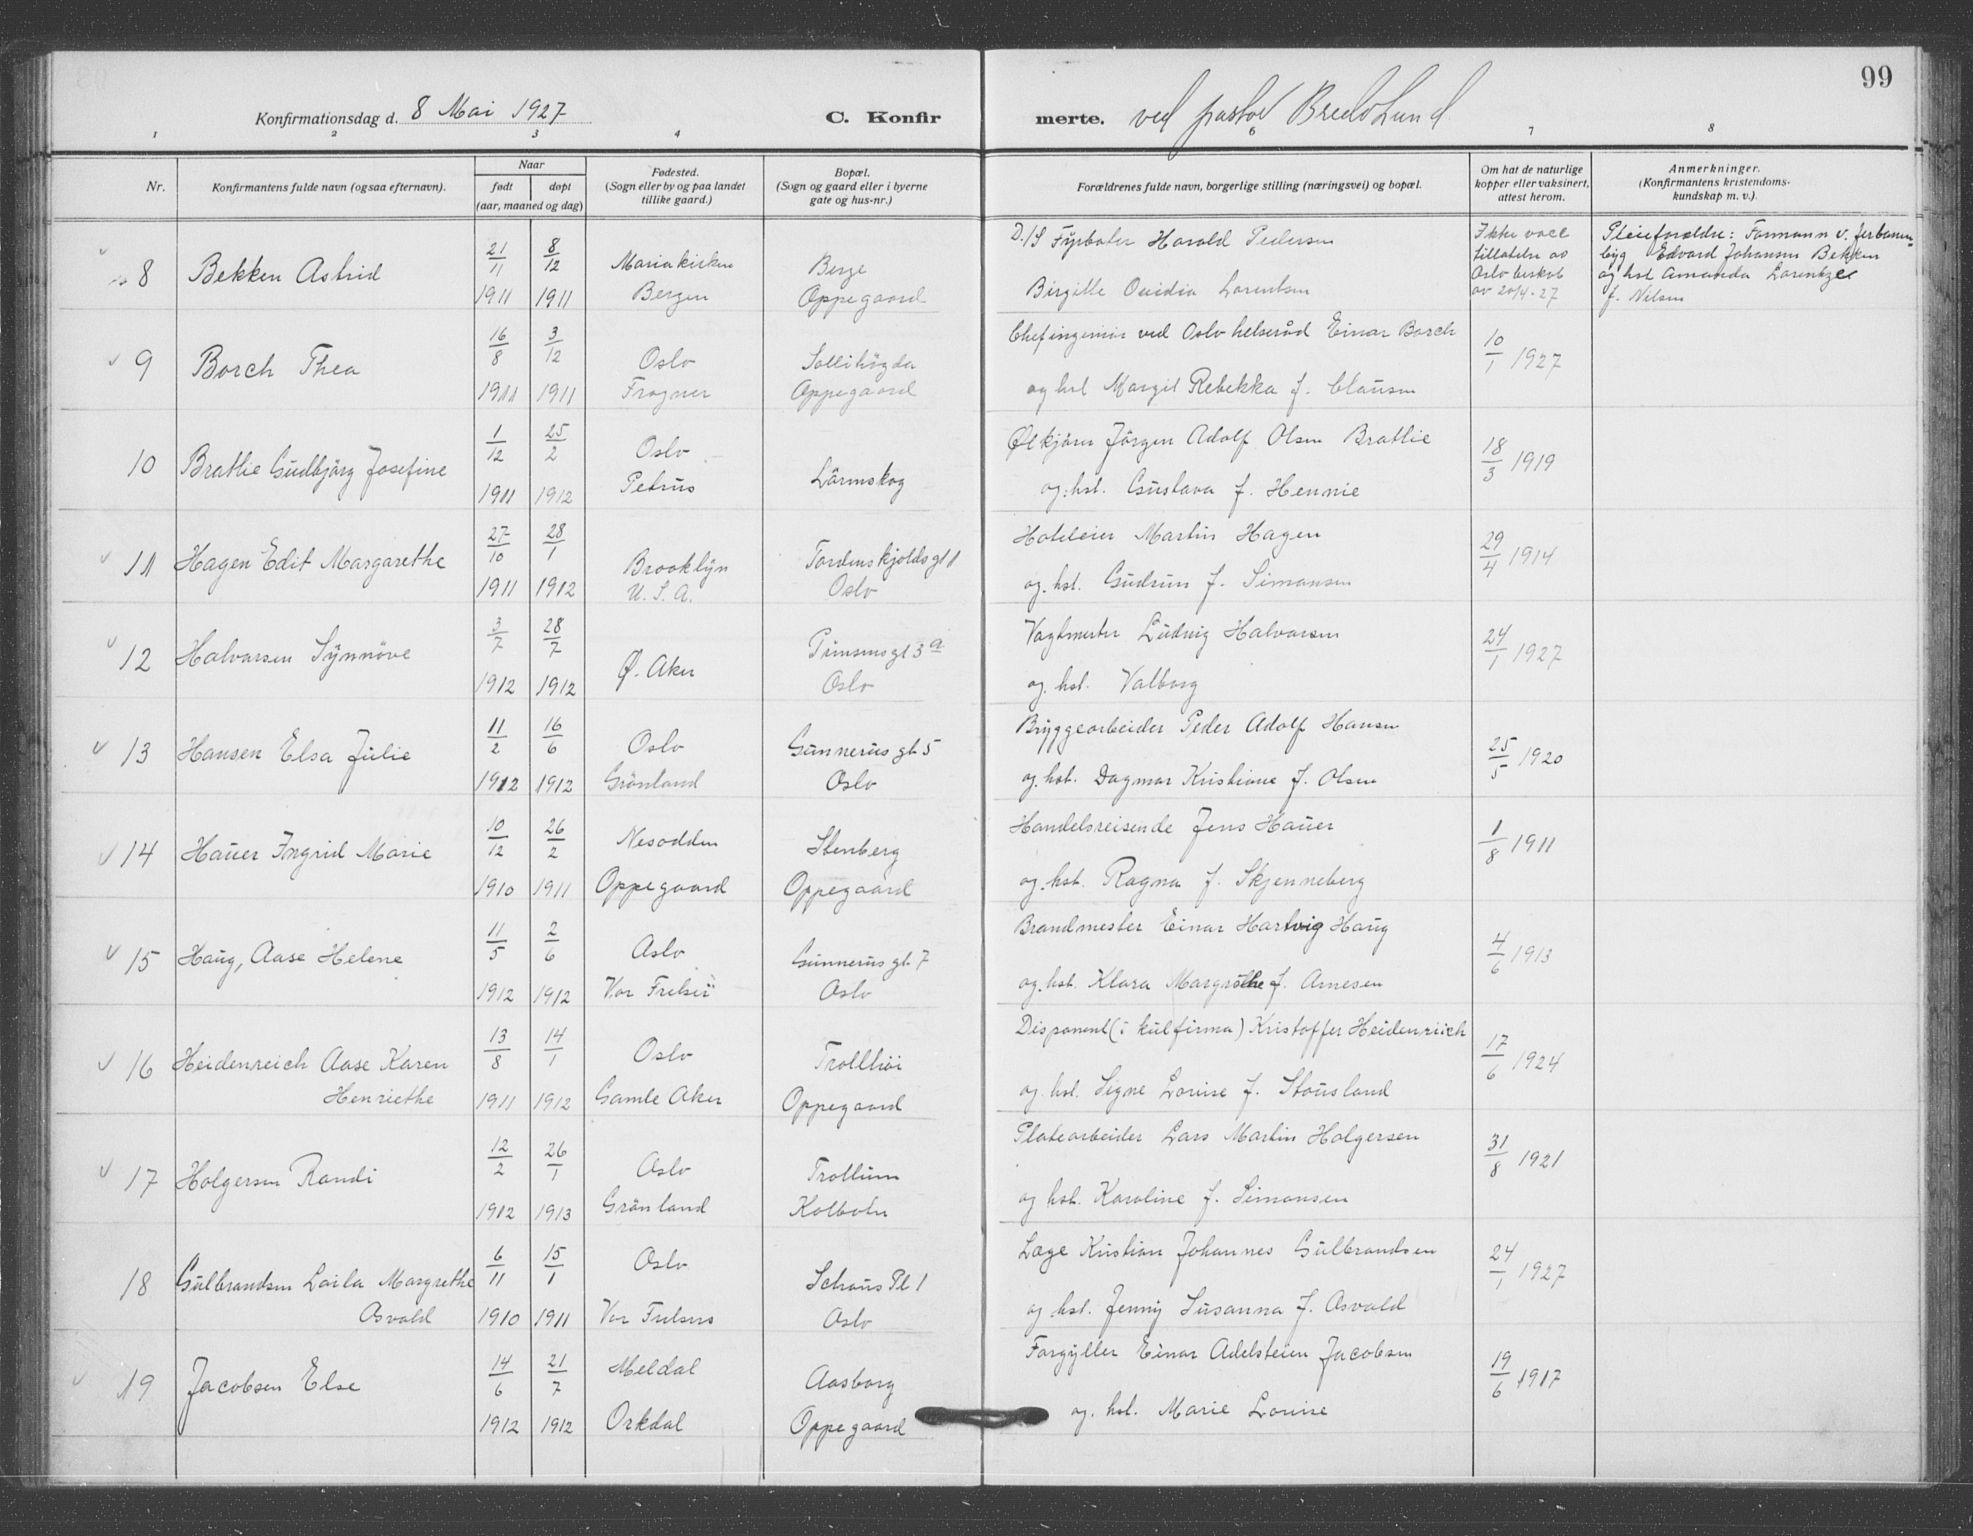 99
Konfirmationsdag d. 8 Mai 1927
C. Konfirmerte. ved pastor Bredo Lund
1 2 3 4 6 7 8
Nr.
Konfirmantens fulde navn (ogsaa efternavn).
Naar
født
døpt
(aar, maaned og dag)
Fødested.
(Sogn eller by og paa landet
tillike gaard.)
Bopæl.
(Sogn og gaard eller i byerne
gate og hus-nr.)
Forældrenes fulde navn, borgerlige stilling (næringsvei) og bopæl.
Om hat de naturlige
kopper eller vaksinert,
attest herom.
Anmerkninger.
(Konfirmantens kristendoms-
kundskap m. v.).
8 Bekken Astrid
21/11 1911
8/12 1911
Mariakirken
Bergen
Berge
Oppegaard
D./S Fyrbøter Harald Pedersen
Birgitte Ovidia Lorentsen
Ikke vacc
tillatelse av
Oslo biskop
av 20/4-27
Pleieforældre: Formann v. jerbanen
Edvard Johansen Bekken
og hst Amanda Lorentze
f. Nilsen
9 Borch Thea
16/8 1911
3/12 1911
Oslo
Frogner
Sollihøgda
Oppegaard
Chefingeniør ved Oslo helseråd Einar Borch
og hst Margit Rebekka f. Clausen
10/1 1927
10 Bratlie Gudbjörg Josefine
1/12 1911
25/2 1912
Oslo
Petrus
Lörenskog
Ølkjörer Jörgen Adolf Olsen Bratlie
og hst. Gustava f. Hennie
18/3 1919
11 Hagen Edit Margarethe
27/10 1911
28/1 1912
Brooklyn
U.S.A.
Tordenskjolds gt 1
Oslo
Hoteleier Martin Hagen
og. hst. Gudrun f. Simonsen
29/4 1914
12 Halvorsen Synnöve
3/7 1912
28/7 1912
Ø. Aker
gt 3a
Oslo
Vagtmester Ludvig Halvorsen
og. hst. Valborg
24/1 1927
13 Hansen Elsa Julie
11/2 1912
16/6 1912
Oslo
Grönland
Gunnerus gt. 5
Oslo
Bryggearbeider Peder Adolf Hansen
og. hst. Dagmar Kristiane f. Olsen
25/5 1920
14 Hauer Ingrid Marie
10/12 1910
26/2 1911
Nesodden
Oppegaard
Stenberg
Oppegaard
Handelsreisende Jens Hauer
og. hst. Ragna f. Skjenneberg
1/8 1911
15 Haug, Aase Helene
11/5 1912
2/6 1912
Oslo
Vor Frelser
Gunnerus gt. 7
Oslo
Brandmester Einar Hartvig Haug
og. hst. Klara Margrethe f. Arnesen
4/6 1913
16 Heidenreich Aase Karen
Henriethe
13/8 1911
14/1 1912
Oslo
Gamle Aker
Trollhöi
Oppegaard
Disponent (i kulfirma) Kristoffer Heidenreich
og. hst. Signe Lovise f. Stousland
17/6 1924
17 Holgersen Randi
12/2 1912
26/1 1913
Oslo
Grönland
Trollum
Kolbotn
Platearbeider Lars Martin Holgersen
og hst. Karoline f. Simonsen
31/8 1921
18 Gulbrandsen Laila Margrethe
Osvold
6/11 1910
15/1 1911
Oslo
Vor Frelsers
Schous Pl 1
Oslo
Læge Kristian Johannes Gulbrandsen
og hst. Jenny Susanna f. Osvald
24/1 1927
19 Jacobsen Else
14/6 1912
21/7 1912
Meldal
Orkdal
Aasborg
Oppegaard
Forgyller Einar Adelsteien Jacobsen
og. hst. Marie Lovise
19/6 1917